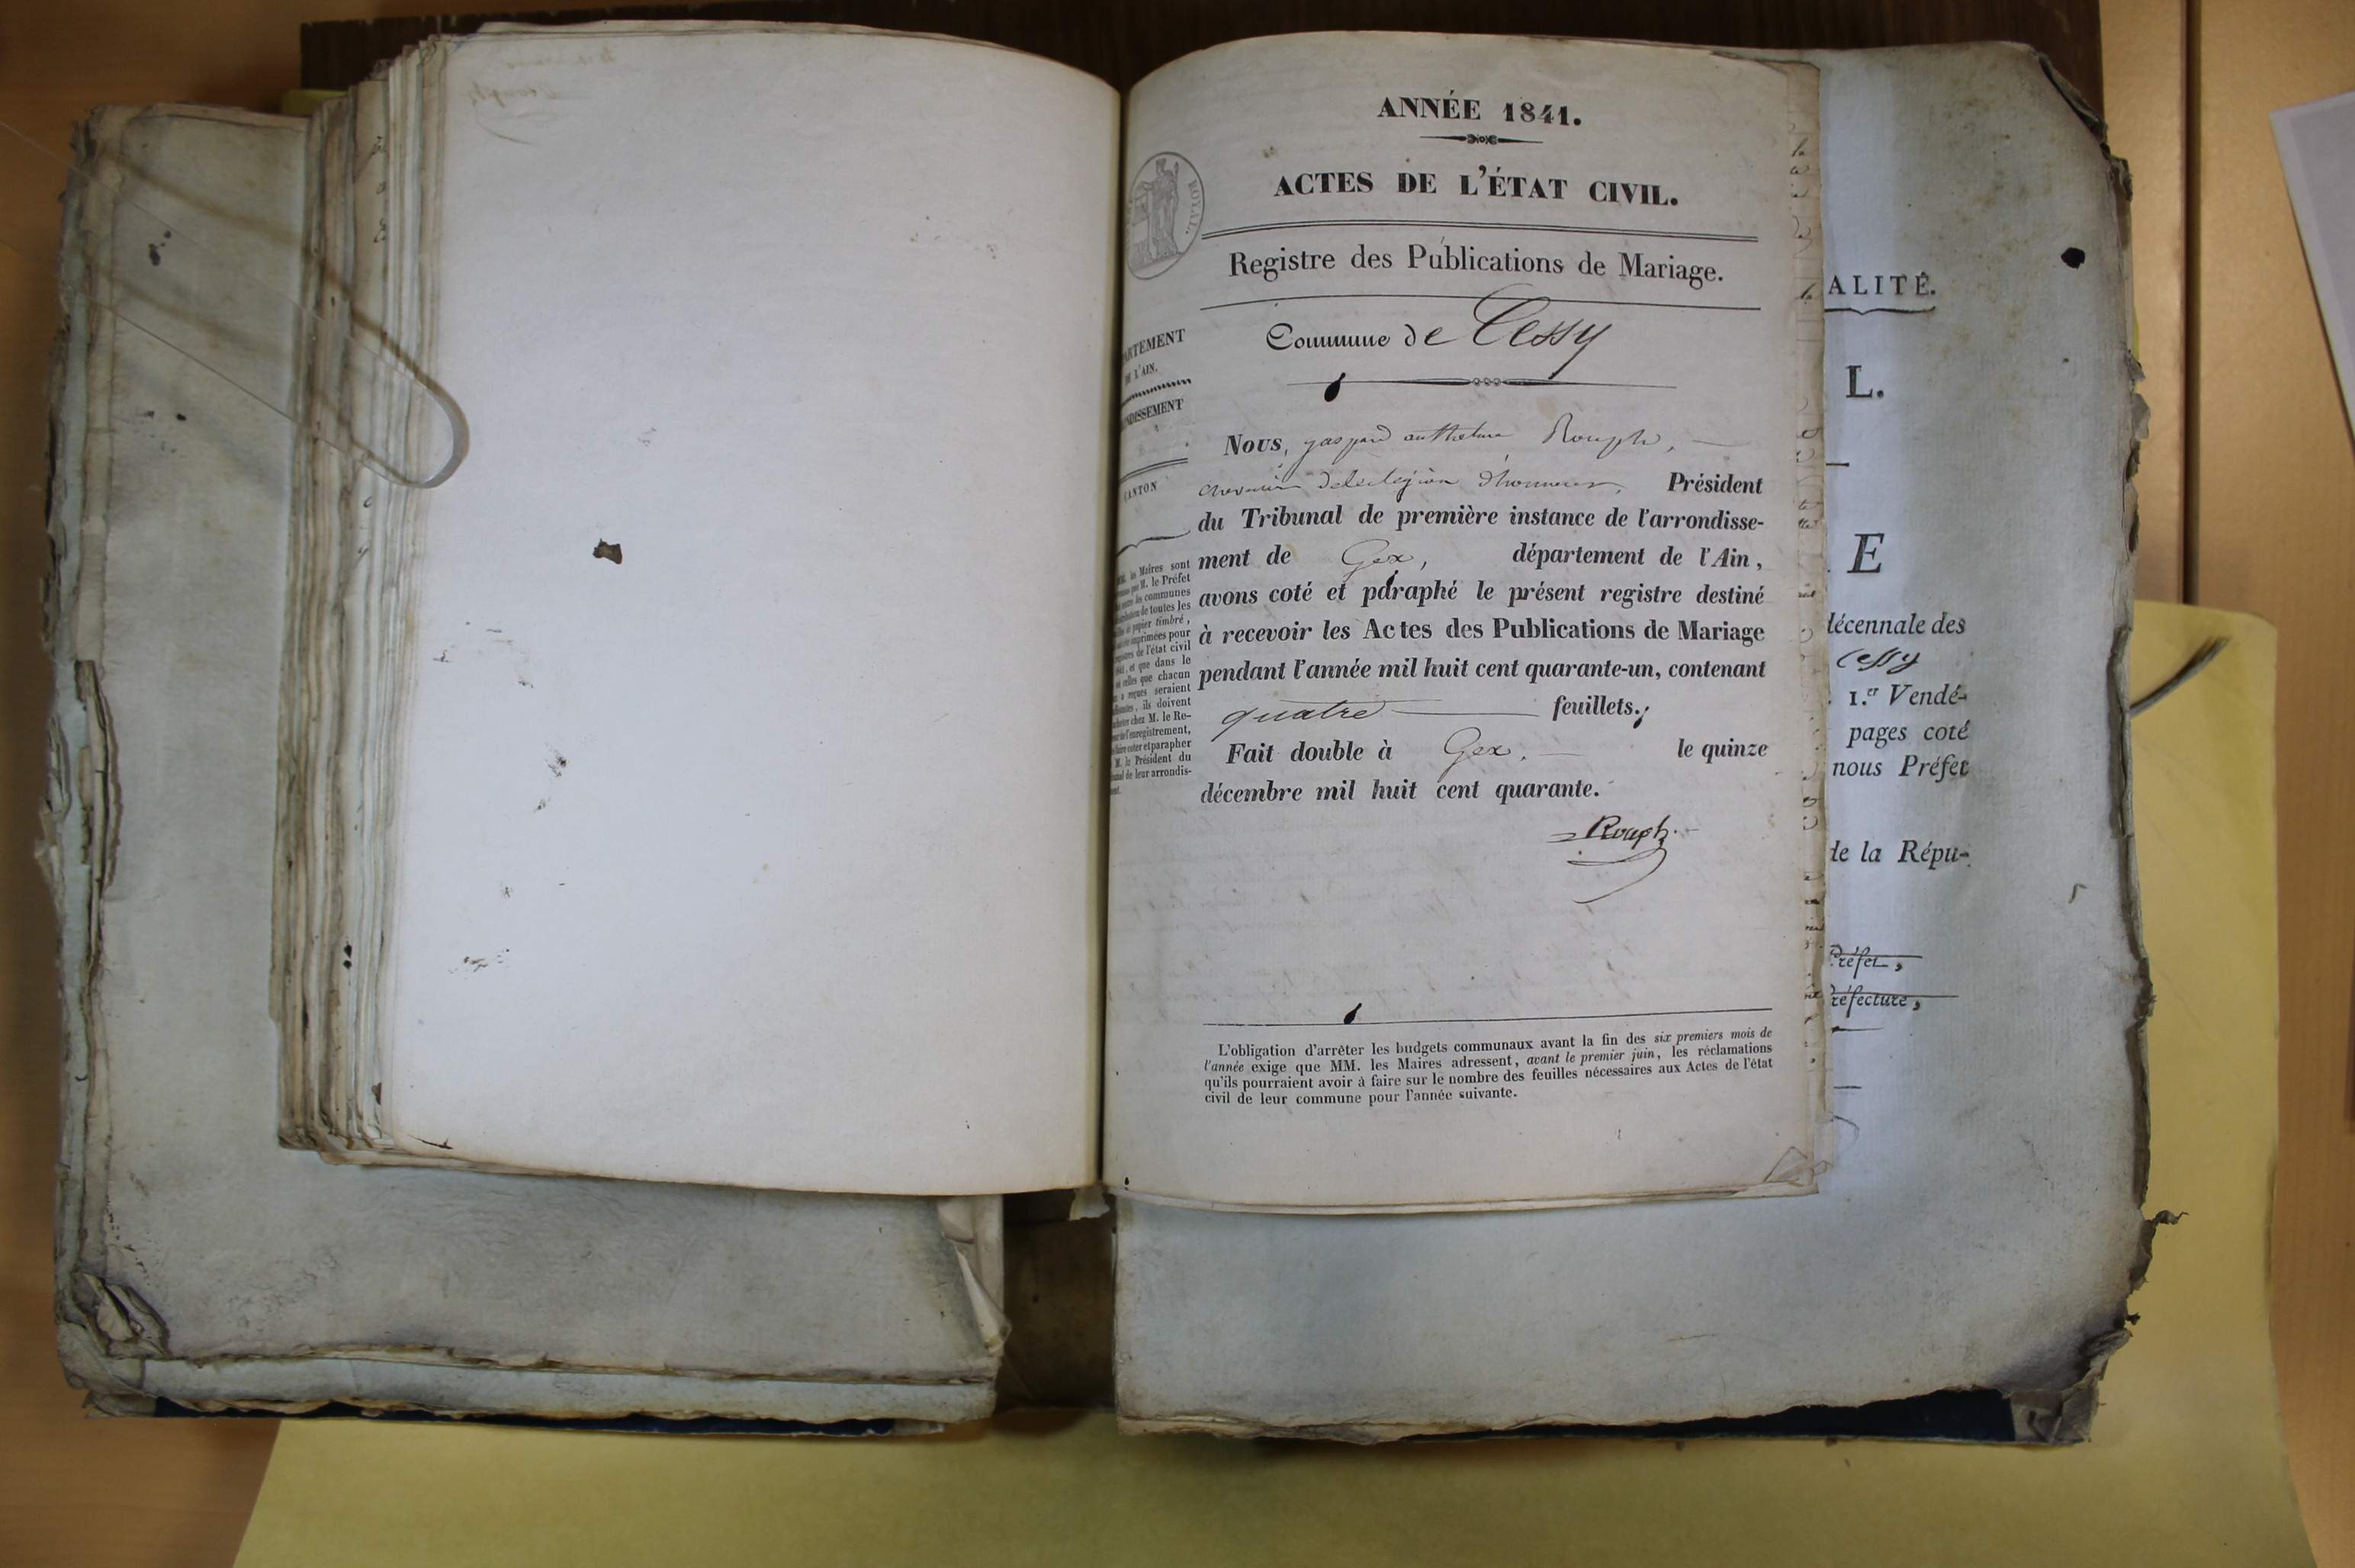 ANNÉE 1841.
ACTES DE L'ÉTAT CIVIL.
ROYAL.
Registre des Publications de Mariage.
Commune de Cessy
ARTEMENT
DE L'AIN.
NDISSEMENT
CANTON
les Maires sont
M. le Préfet
les communes
de toutes les
papier timbré,
imprimées pour
de l'état civil
et que dans le
celles que chacun
reçues seraient
ils doivent
chez M. le Re-
de l'enregistrement,
faire coter et parapher
M. le Président du
de leur arrondis-
Nous, gaspard anthelme Rouph,
chevalier de la légion d'honneur, Président
du Tribunal de première instance de l'arrondisse-
ment de Gex, département de l'Ain,
avons coté et paraphé le présent registre destiné
à recevoir les Actes des Publications de Mariage
pendant l'année mil huit cent quarante-un, contenant
quatre feuillets.
Fait double à Gex. le quinze
décembre mil huit cent quarante.
Rouph
L'obligation d'arrêter les budgets communaux avant la fin des six premiers mois de
l'année exige que MM. les Maires adressent, avant le premier juin, les réclamations
qu'ils pourraient avoir à faire sur le nombre des feuilles nécessaires aux Actes de l'état
civil de leur commune pour l'année suivante.
ALITÉ.
L.
E
décennale des
Cessy
1.er Vendé-
pages coté
nous Préfet
de la Répu-
Préfet,
réfecture,